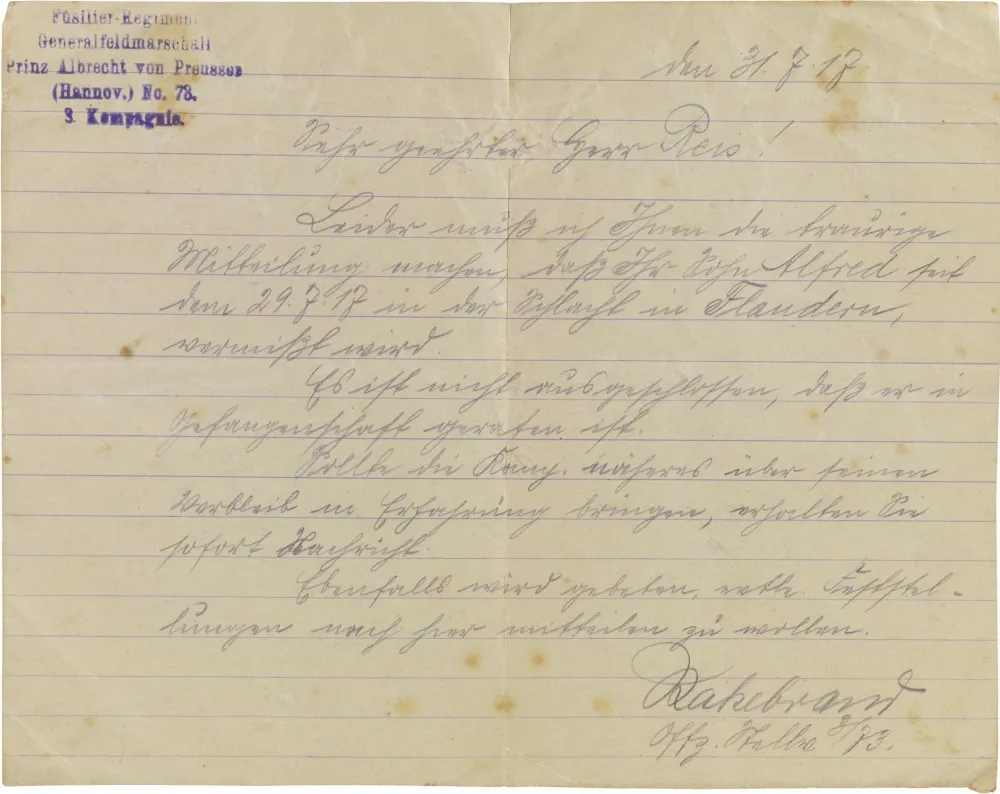 Füsilier-Regiment
Generalfeldmarschall
Prinz Albrecht von Preussen
(Hannov.) No. 73.
3. Kompagnie.
den 31. 7. 17.
Sehr geehrter Herr Reis!
Leider muß ich Ihnen die traurige
Mitteilung machen, daß Ihr Sohn Alfred seit
dem 29. 7. 17 in der Schlacht in Flandern,
vermißt wird.
Es ist nicht ausgeschlossen, daß er in
Gefangenschaft geraten ist.
Sollte die Komp. näheres über seinen
Verbleib in Erfahrung bringen, erhalten Sie
sofort Nachricht.
Ebenfalls wird gebeten, evtle. Feststel-
lungen nach hier mitteilen zu wollen.
Rakebrand
Offz. Stellv. 3/73.